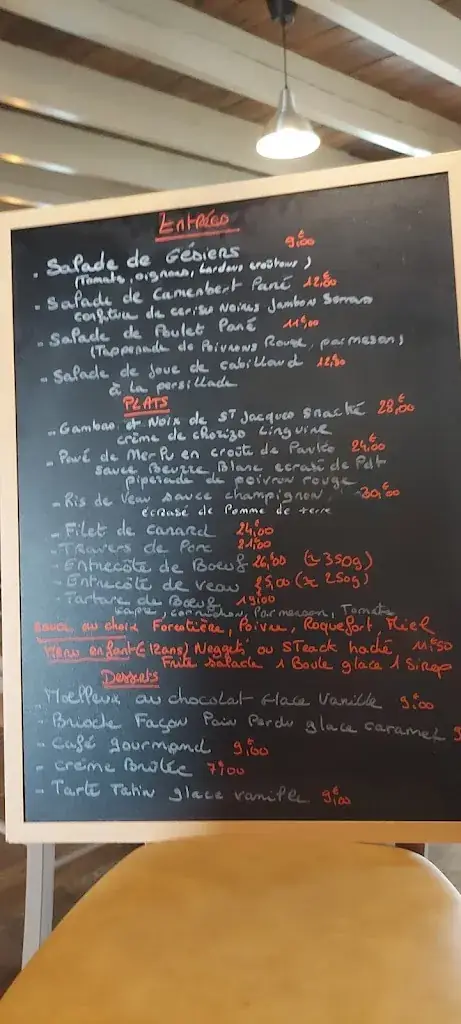 Entrées
- Salade de Gésiers 9,00€
(Tomate, oignons, lardons croûtons)
- Salade de Camembert Pané 12,00€
confiture de cerise Noires Jambon Serrano
- Salade de Poulet Pané 11,00€
(Tappenade de Poivrons Rouge, parmesan)
- Salade de joue de cabillaud 12,50€
à la persillade
PLATS
- Gambas et Noix de St Jacques Snacké 28,00€
crème de chorizo Linguine
- Pavé de Merlu en croute de 24,00€
sauce Beurre Blanc ecrasé de Pdt
piperade de poivron rouge
- Ris de Veau sauce champignon, 30,00€
écrasé de Pomme de terre
- Filet de canard 24,00€
- Travers de Porc 21,00€
- Entrecôte de Boeuf 26,00€ (≈ 350g)
- Entrecôte de veau 25,00€ (≈ 250g)
- Tartare de Boeuf 19,00€
capre, cornichon, Parmesan, Tomate
Sauce au choix Forestière, Poivre, Roquefort Miel
Menu enfant (- 12ans) Nugget's ou STeack haché 11€50
Frite salade 1 Boule glace 1 Sirop
Desserts
- Moelleux au chocolat Glace Vanille 9,00€
- Brioche Façon Pain Perdu glace caramel 9
- Café gourmand 9,00€
- crème Brûlée 7,00€
- Tarte Tatin glace vanille 9,00€